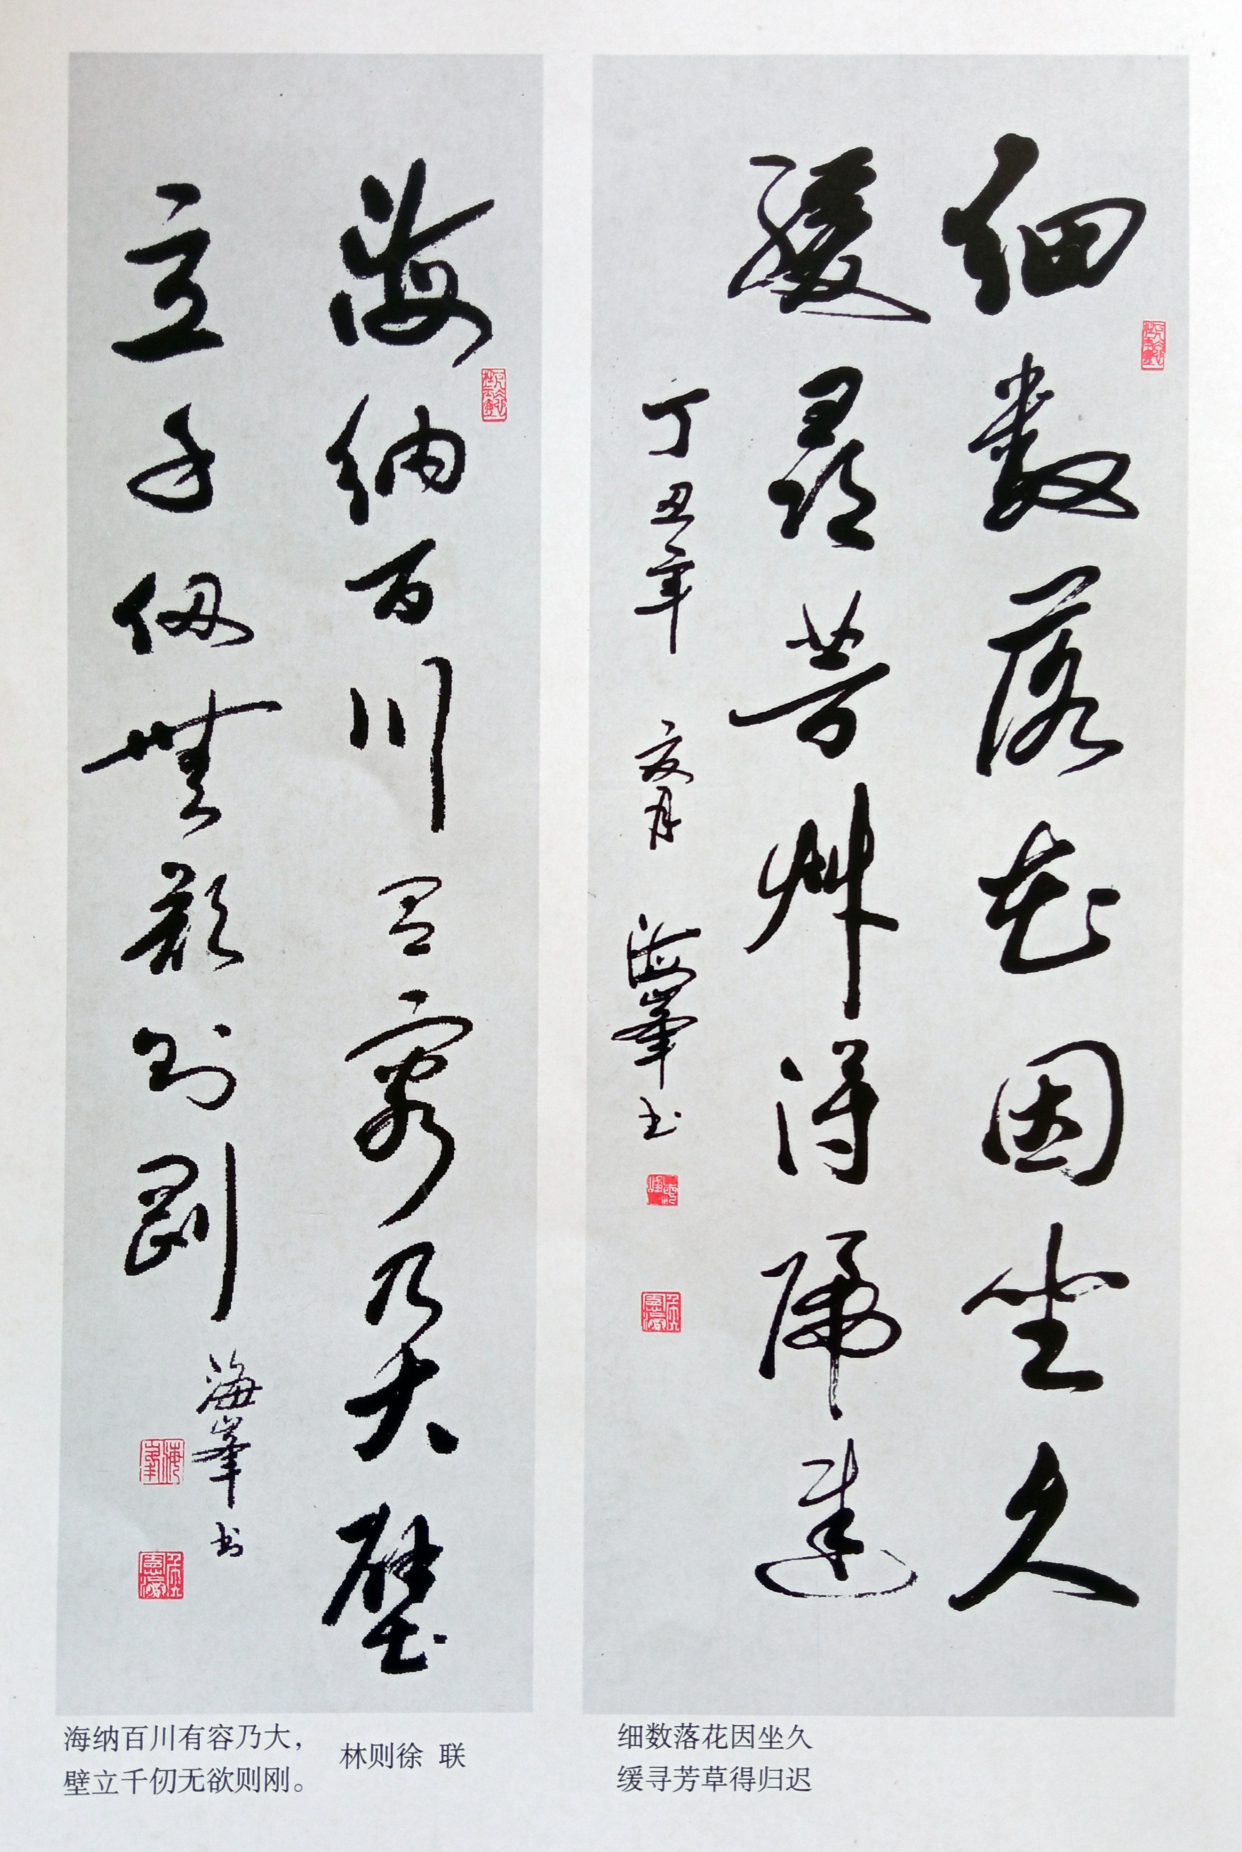 细数落花因坐久
缓寻芳艸得归迟
丁丑年 夏月 海峯书
海纳百川有容乃大壁
立千仞無欲则刚
海峯书
海纳百川有容乃大，
壁立千仞无欲则刚。
林则徐 联
细数落花因坐久
缓寻芳草得归迟